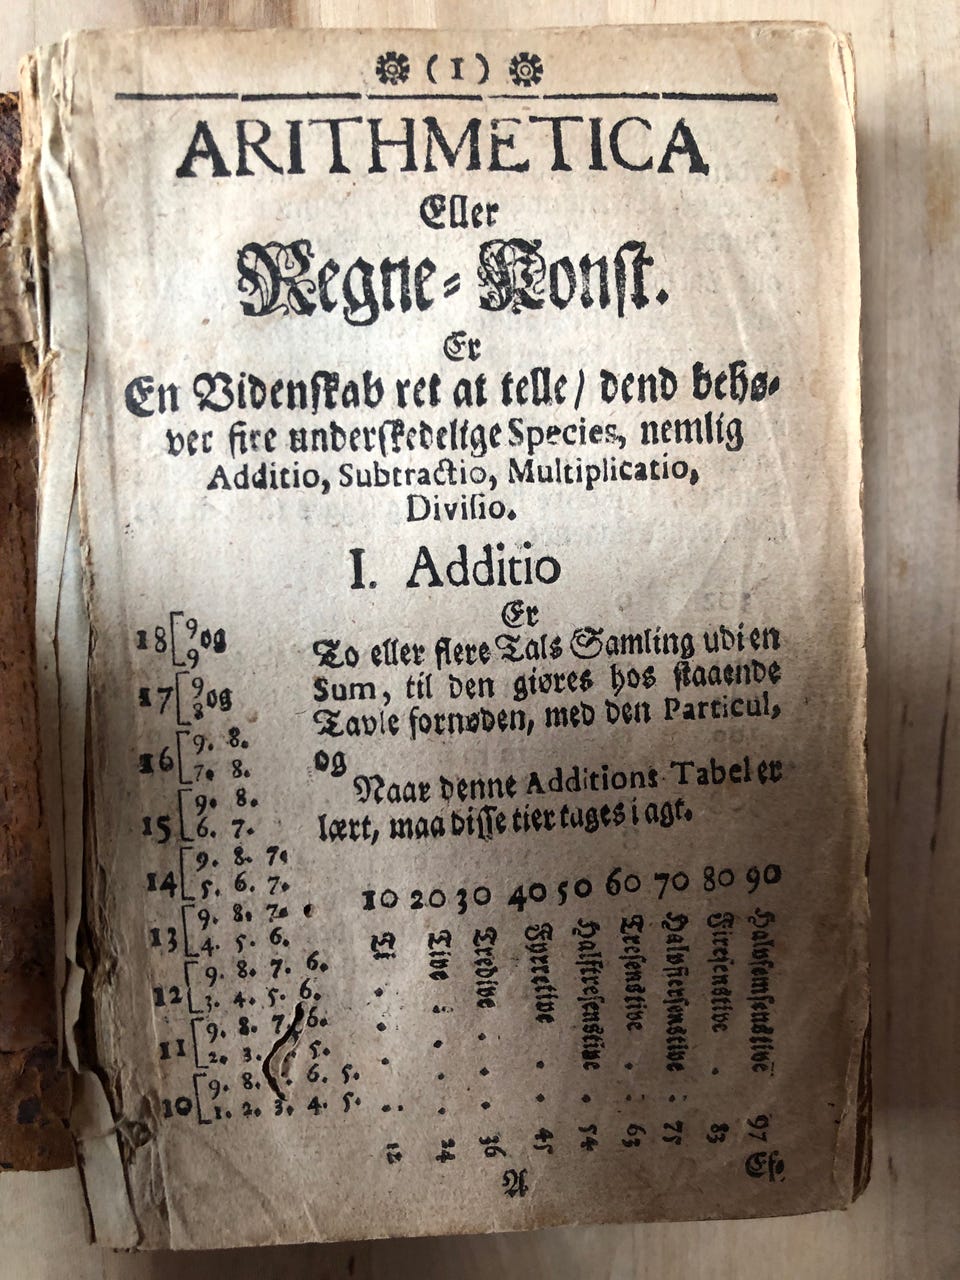 (1)
ARITHMETICA
Eller
Regne-Konst.
Er
En Videnskab ret at telle/ dend behø-
ver fire underskedelige Species, nemlig
Additio, Subtractio, Multiplicatio,
Divisio.
I. Additio
Er
To eller flere Tals Samling udi en
Sum, til den giøres hos staaende
Tavle fornøden, med den Particul,
og
Naar denne Additions Tabel er
lært, maa disse tier tages i agt.
18 [ 9 og
9
17 [ 9 og
8
16 [ 9. 8.
7. 8.
15 [ 9. 8.
6. 7.
14 [ 9. 8. 7.
5. 6. 7.
13 [ 9. 8. 7.
4. 5. 6.
12 [ 9. 8. 7. 6.
3. 4. 5. 6.
11 [ 9. 8. 7. 6.
2. 3. 5.
10 [ 9. 8. 6. 5.
1. 2. 3. 4. 5.
10 20 30 40 50 60 70 80 90
Ti
Tive
Tredive
Fyrretive
Halftresenstive
Tresenstive
Halvfiersenstive
Firesenstive
Halvfemsenstive
12 24 36 45 54 63 75 83 97
A